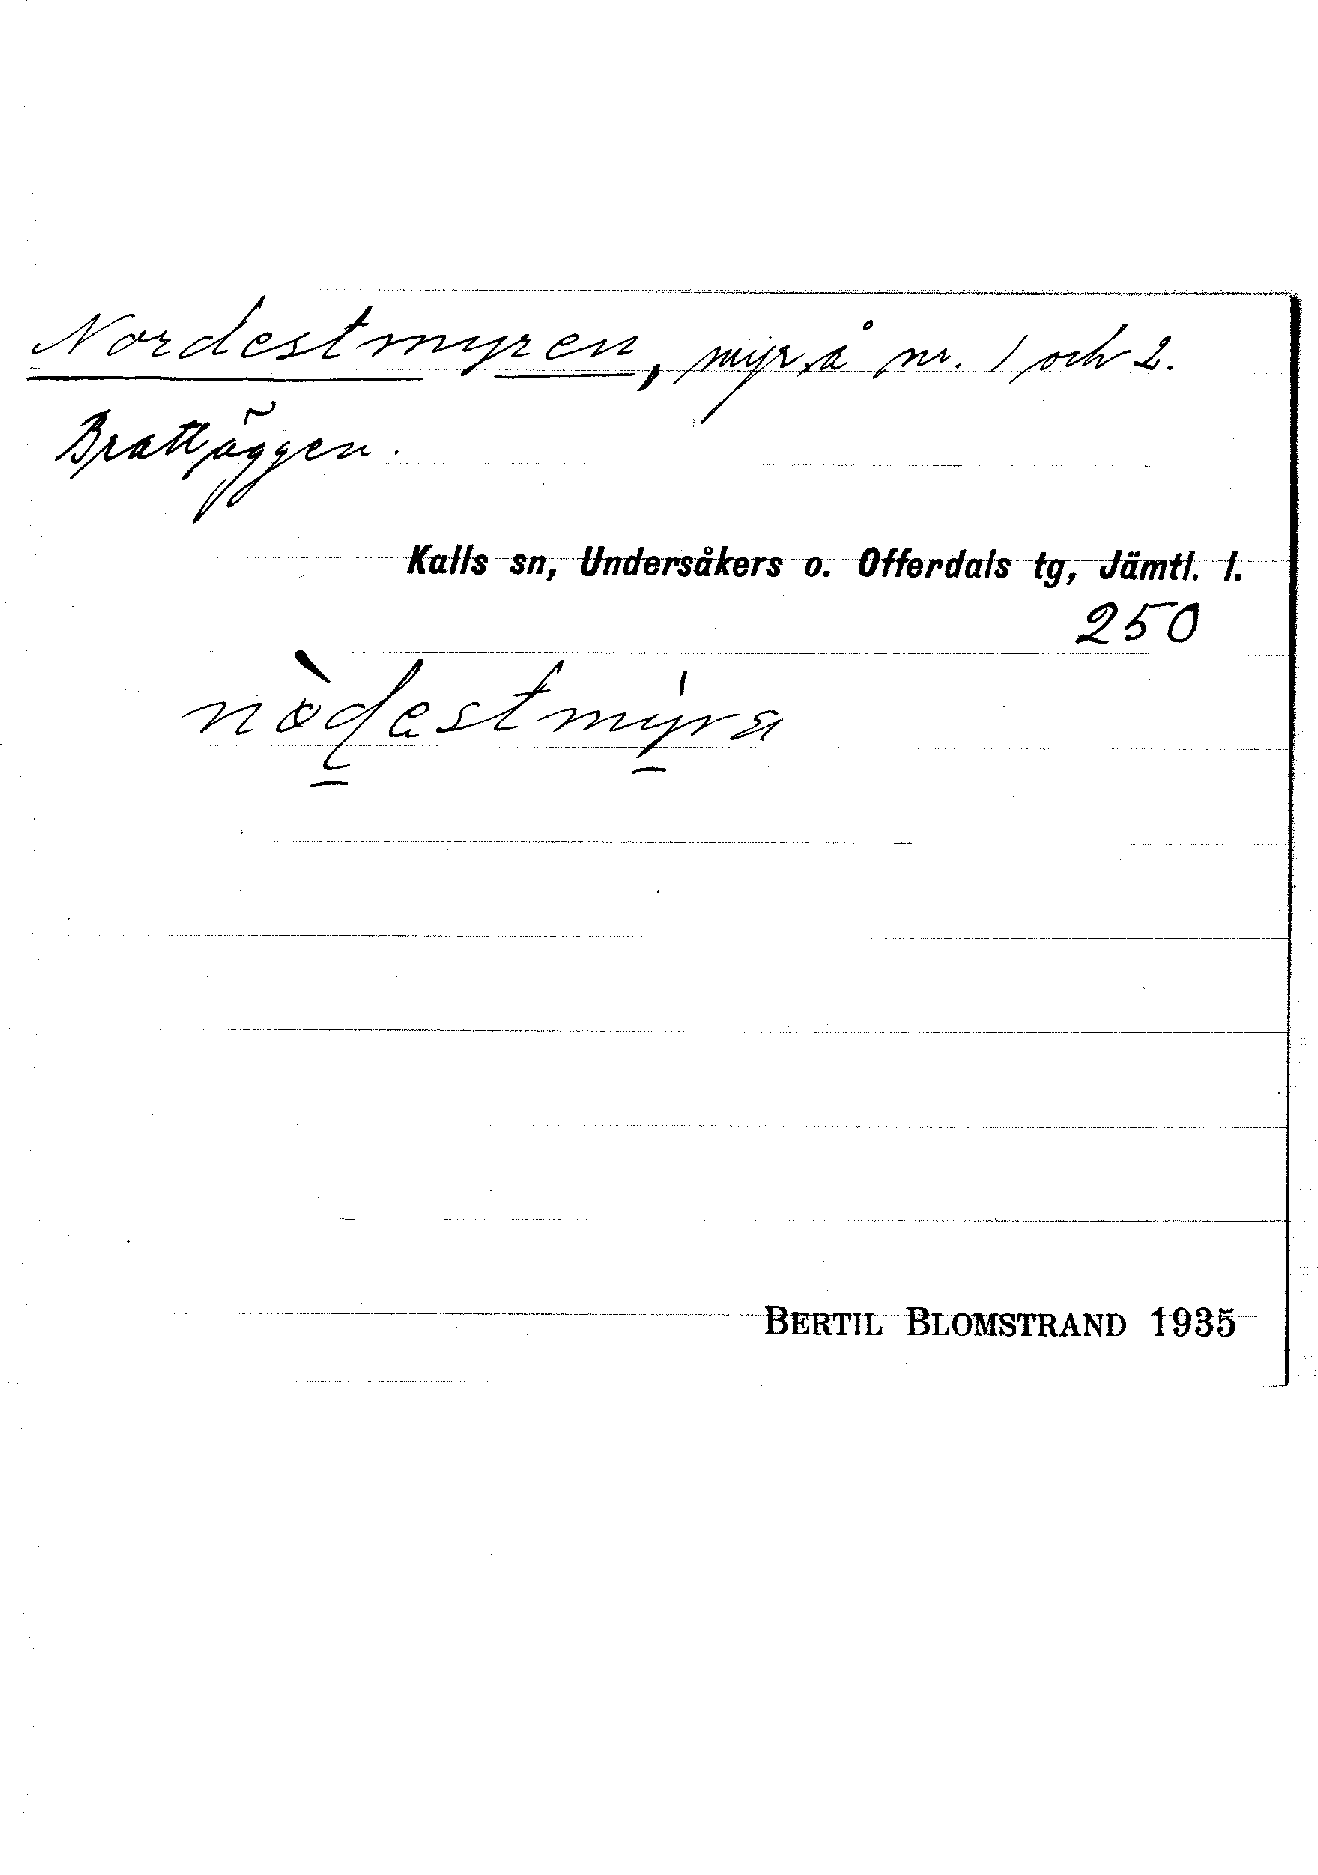 Nordestmyren, myr å nr. 1 och 2.
Brattäggen.
Kalls sn, Undersåkers o. Offerdals tg, Jämtl. l.
250
nòdestmýra
BERTIL BLOMSTRAND 1935